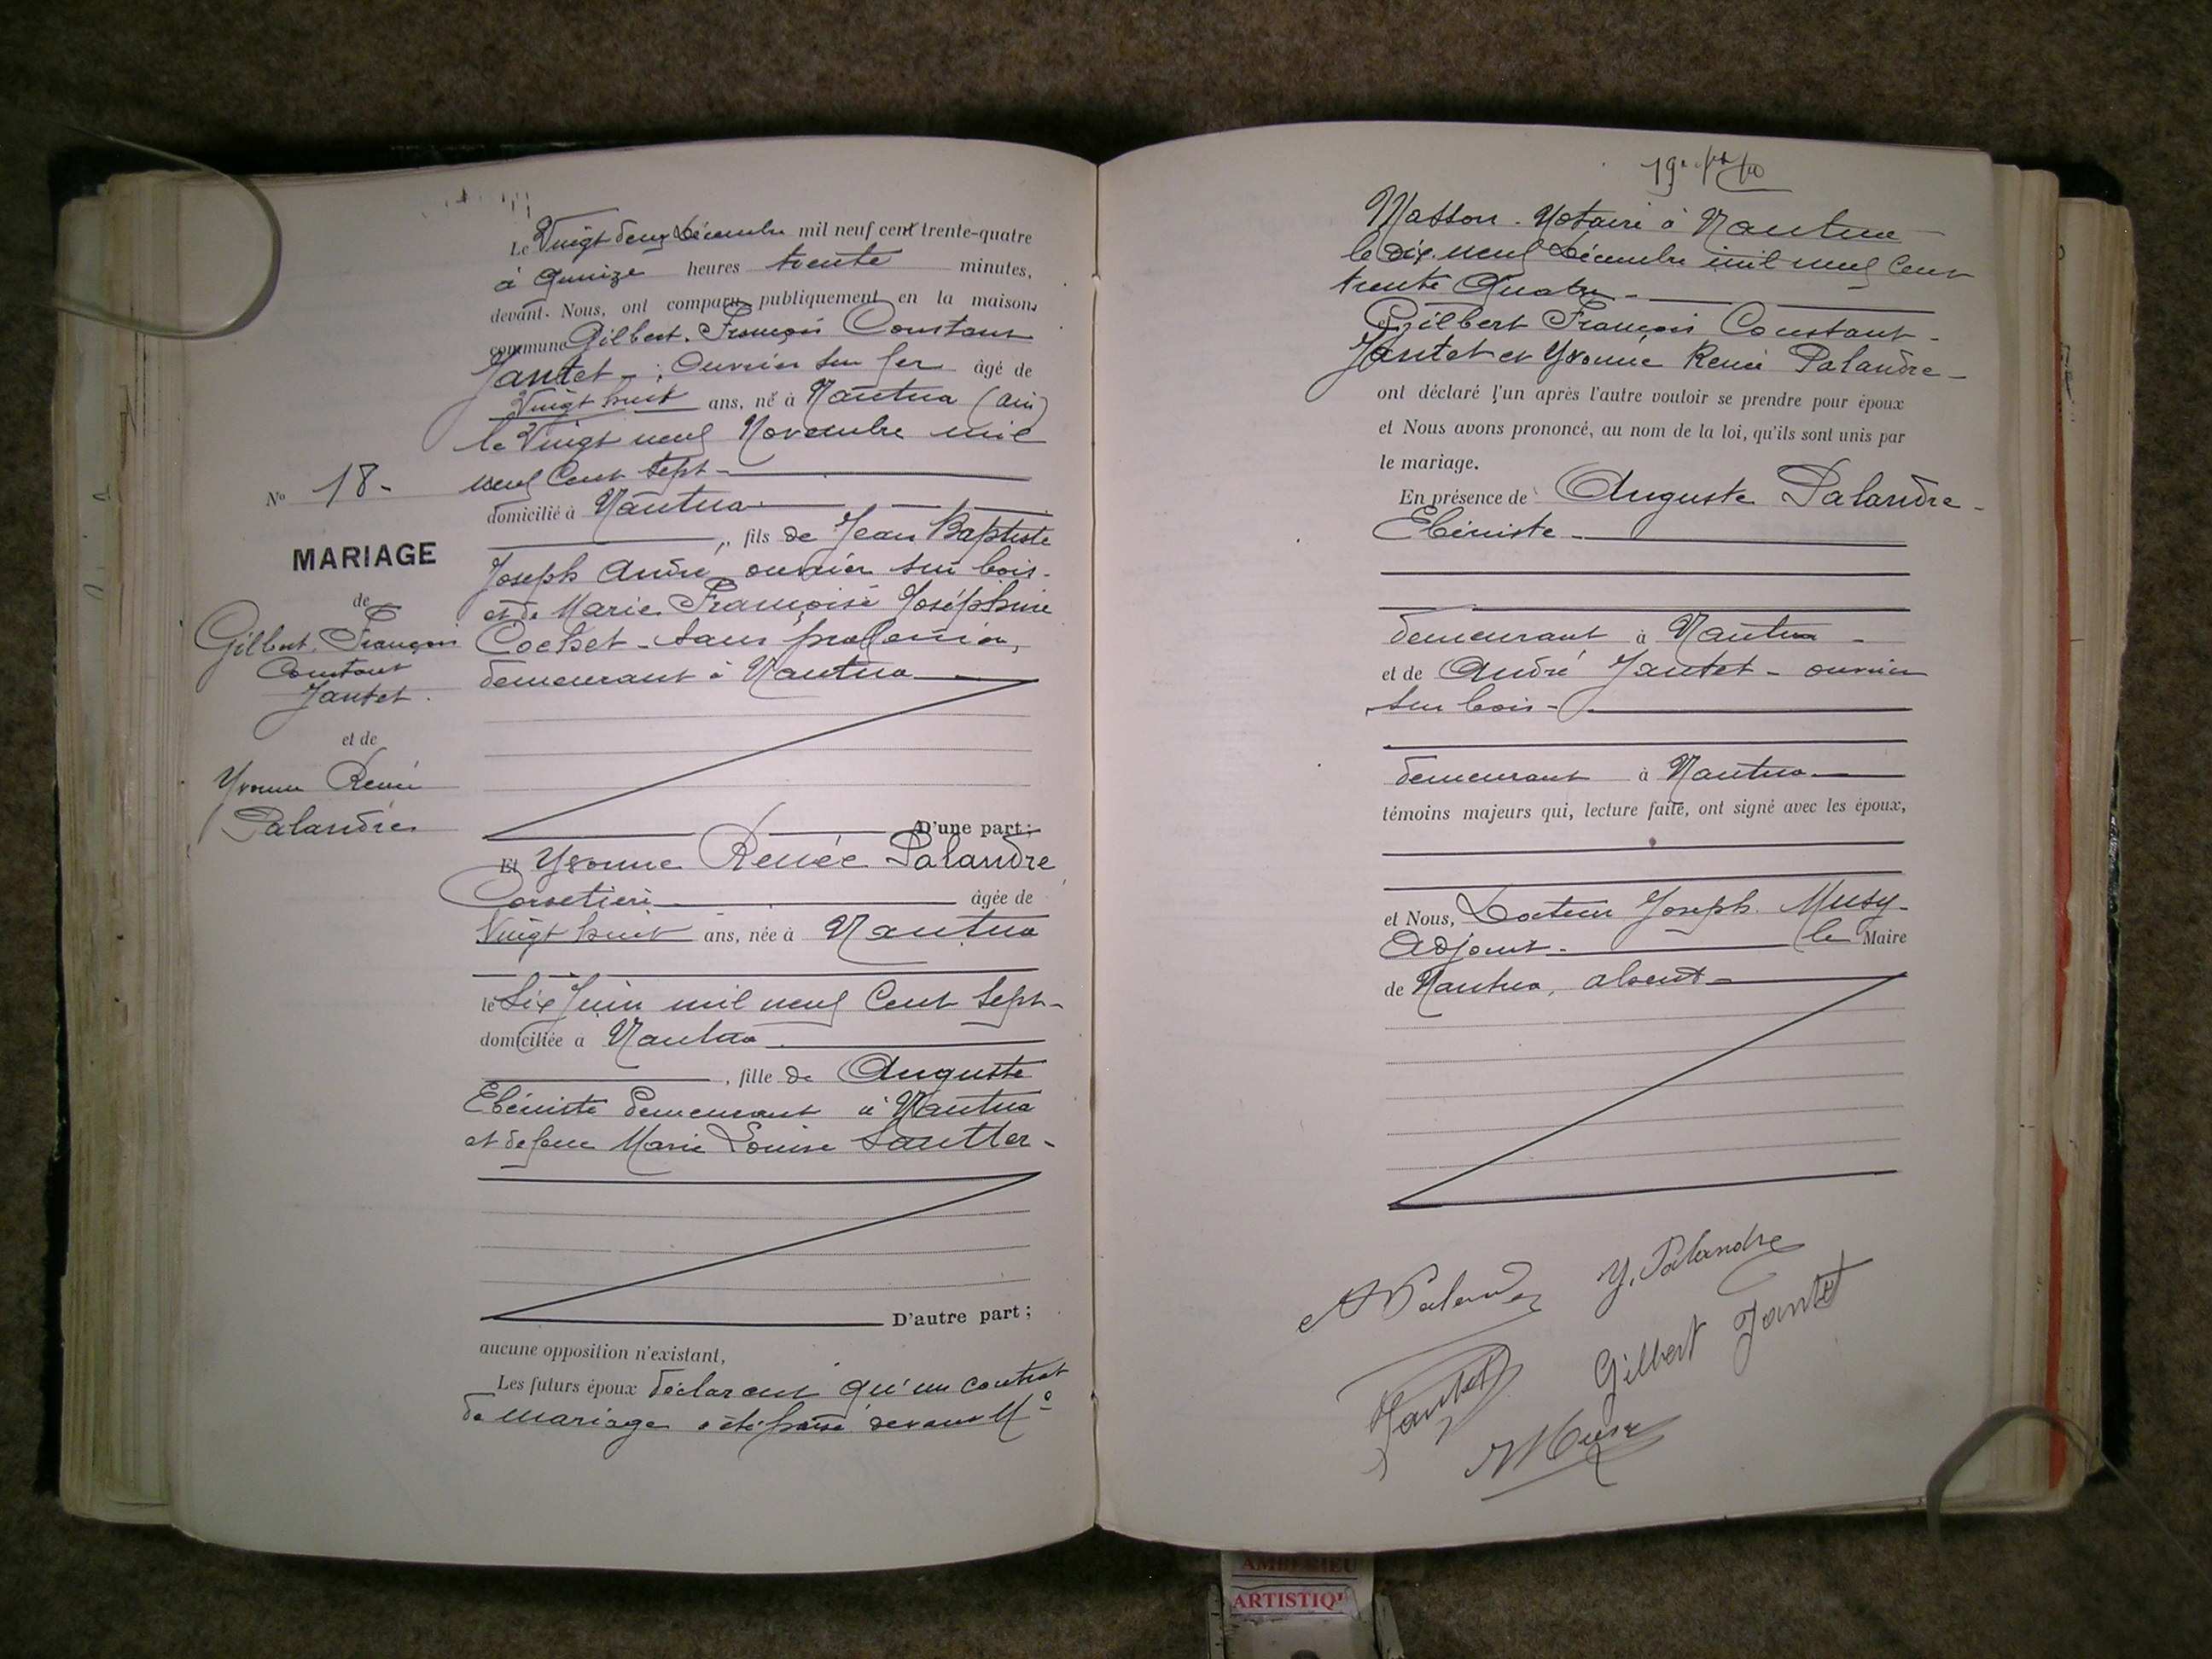 Le Vingt deux Décembre mil neuf cent trente-quatre
à Quinze heures trente minutes,
devant Nous, ont comparu publiquement en la maison
commune Gilbert François Constant
Jantet - ; Ouvrier sur fer âgé de
Vingt huit ans, né à Nantua (Ain)
le Vingt neuf Novembre mil
neuf Cent Sept -
domicilié à Nantua
, fils de Jean Baptiste
Joseph André ouvrier sur bois -
et de Marie Françoise Joséphine
Cochet - Sans profession,
demeurant à Nantua
D'une part ;
No 18 -
MARIAGE
de
Gilbert François
Constant
Jantet.
et de
Yvonne Renée
Palandre
Et Yvonne Renée Palandre
Corsetière âgée de
Vingt huit ans, née à Nantua
le Six Juin mil neuf Cent Sept -
domiciliée à Nantua
, fille de Auguste
Ebéniste demeurant à Nantua
et de feue Marie Louise Sautter -
D'autre part ;
aucune opposition n'existant,
Les futurs époux déclarent qu'un contrat
de mariage a été passé devant Me
Masson - Notaire à Nantua
le dix neuf Décembre mil neuf Cent
trente Quatre -
Gilbert François Constant -
Jantet et Yvonne Renée Palandre -
ont déclaré l'un après l'autre vouloir se prendre pour époux
et Nous avons prononcé, au nom de la loi, qu'ils sont unis par
le mariage.
En présence de Auguste Palandre -
Ebéniste -
demeurant à Nantua -
et de André Jantet - ouvrier
sur bois -
demeurant à Nantua
témoins majeurs qui, lecture faite, ont signé avec les époux,
et Nous, Docteur Joseph Musy -
Adjoint - le Maire
de Nantua, absent -
A Palandre Y. Palandre
Jantet Gilbert Jantet
Musy
AMBERIEU
ARTISTIQ